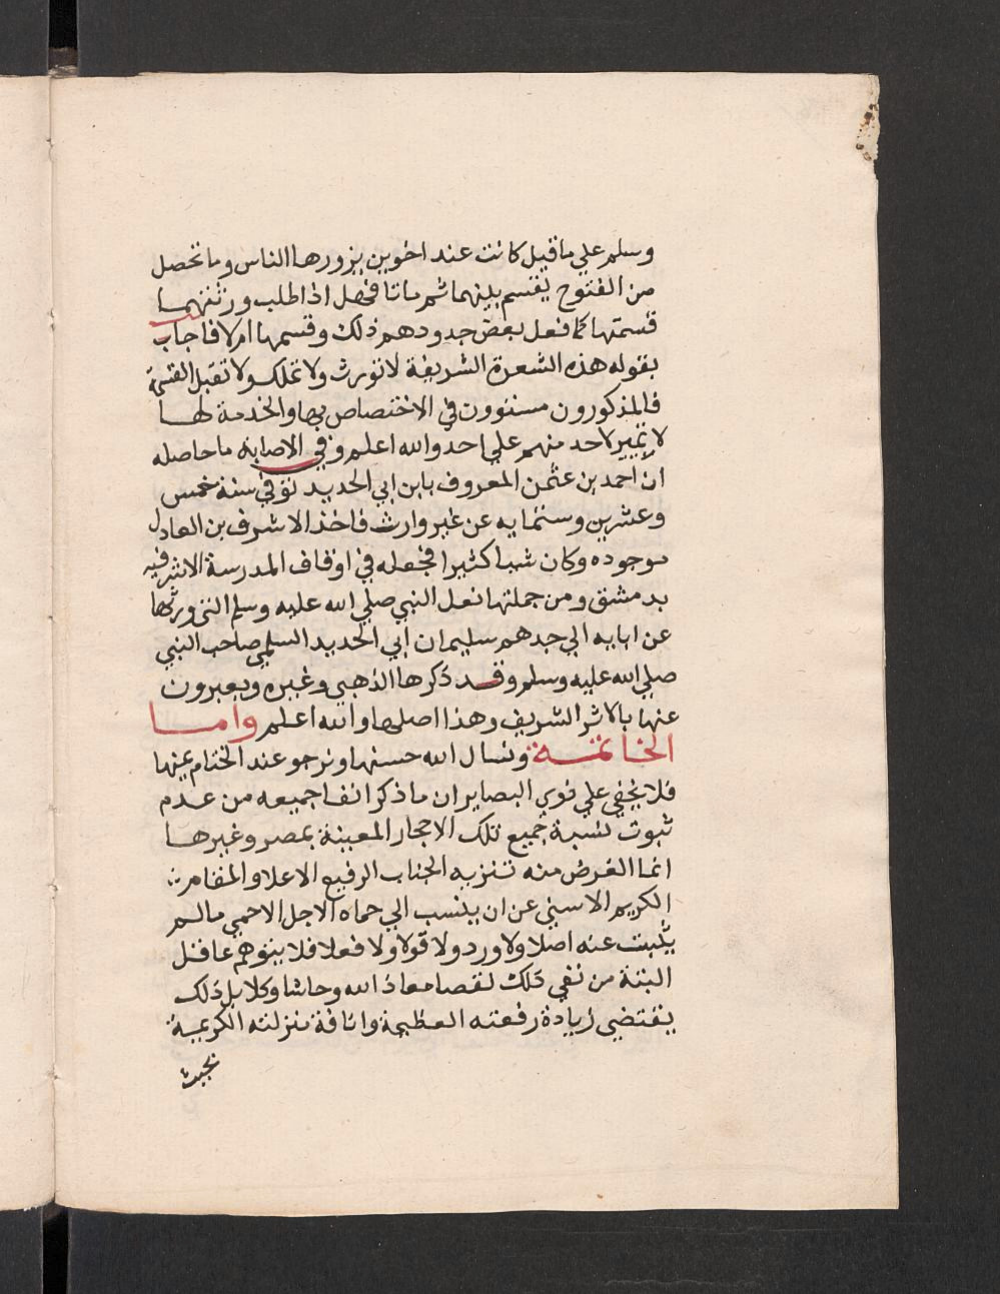 وسلم علي ماقيل كانت عند اخوين يزورها الناس وما تحصل
من الفتوح يقسم بينهما ثم ماتا فهل اذا طلب ورثتهما
قسمتها كما فعل بعض جدودهم ذلك وقسمها ام لا فاجاب
بقوله هذه الشعرة الشريفة لا تورث ولا تملك ولا تقبل القسمة
فالمذكورون مستوون في الاختصاص بها والخدمة لها
لا تمييز لاحد منهم علي احد والله اعلم وفي الاصابة ما حاصله
ان احمد بن عثمن المعروف بابن ابي الحديد توفي سنة خمس
وعشرين وستمايه عن غير وارث فاخذ الاشرف بن العادل
موجوده وكان شيا كثيرا فجعله في اوقاف المدرسة الاشرفيه
بدمشق ومن جملتها نعل النبي صلي الله عليه وسلم التي ورثها
عن ابايه الي جدهم سليمان ابي الحديد السلمي صاحب النبي
صلي الله عليه وسلم وقد ذكرها الذهبي وغيره ويعبرون
عنها بالاثر الشريف وهذا اصلها والله اعلم واما
الخاتمة ونسال الله حسنها ونرجو عند الختام يمنها
فلا يخفي علي ذوي البصاير ان ما ذكر انفا جميعه من عدم
ثبوت نسبة جميع تلك الاحجار المعينة بمصر وغيرها
انما الغرض منه تنزيه الجناب الرفيع الاعلا والمقام
الكريم الاسني عن ان ينسب الي حماه الاجل الاحمي ما لم
يثبت عنه اصلا ولا ورد ولا قولا ولا فعلا فلا يتوهم عاقل
البتة من نفي ذلك نقصا معاذ الله وحاشا وكلا بل ذلك
يقتضي زيادة رفعته العظيمة وانافة منزلته الكريمة
بحيث